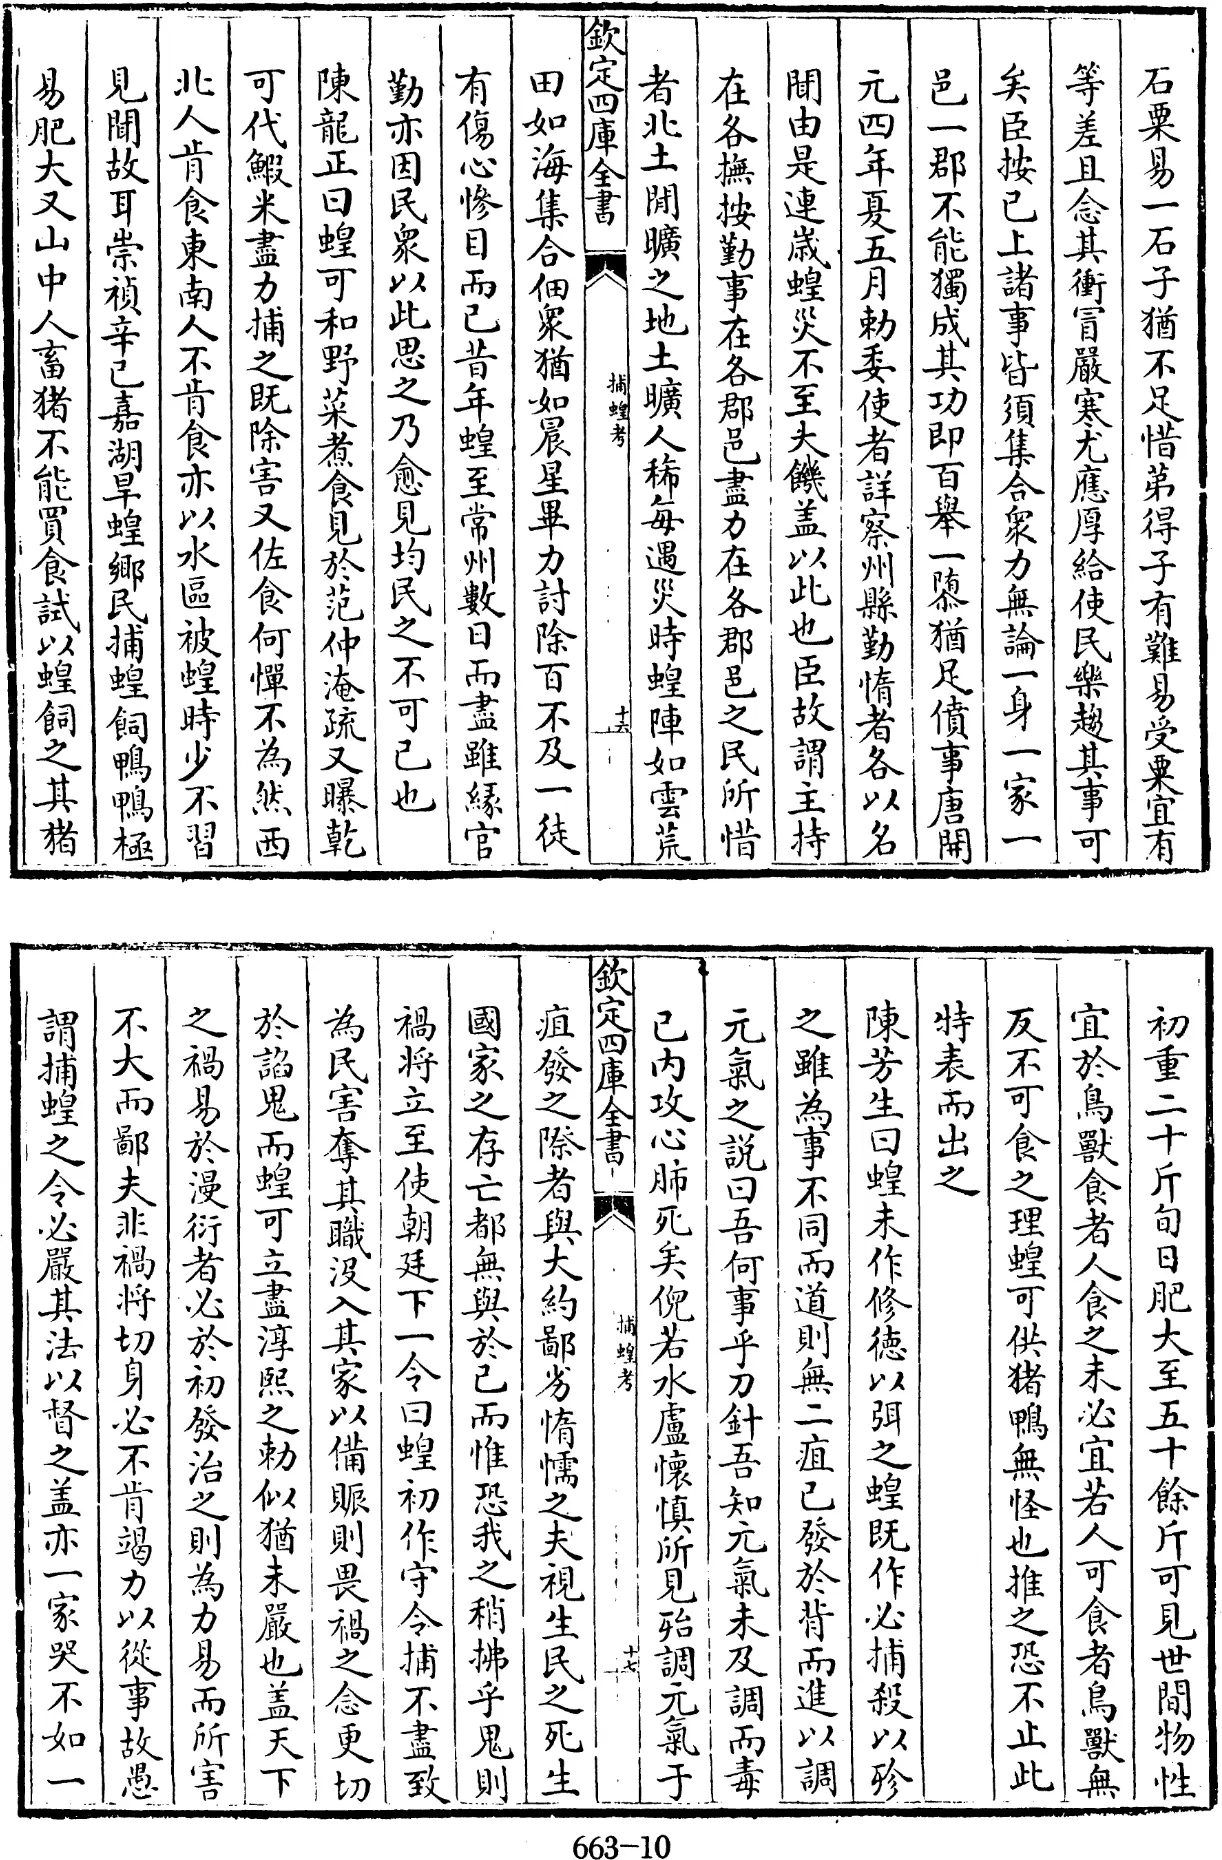 石粟易一石子猶不足惜第得子有難易受粟宜有
等差且念其衝冒嚴寒尤應厚給使民樂趨其事可
矣臣按已上諸事皆須集合衆力無論一身一家一
邑一郡不能獨成其功即百舉一隳猶足僨事唐開
元四年夏五月勅委使者詳察州縣勤惰者各以名
聞由是連歲蝗災不至大饑盖以此也臣故謂主持
在各撫按勤事在各郡邑盡力在各郡邑之民所惜
者北土閒曠之地土曠人稀每遇災時蝗陣如雲荒
欽定四庫全書
捕蝗考
十六
田如海集合佃衆猶如晨星畢力討除百不及一徒
有傷心慘目而已昔年蝗至常州數日而盡雖緣官
勤亦因民衆以此思之乃愈見均民之不可已也
陳龍正曰蝗可和野菜煮食見於范仲淹疏又曝乾
可代鰕米盡力捕之既除害又佐食何憚不為然西
北人肯食東南人不肯食亦以水區被蝗時少不習
見聞故耳崇禎辛巳嘉湖旱蝗鄉民捕蝗飼鴨鴨極
易肥大又山中人畜猪不能買食試以蝗飼之其猪
初重二十斤旬日肥大至五十餘斤可見世間物性
宜於鳥獸食者人食之未必宜若人可食者鳥獸無
反不可食之理蝗可供猪鴨無怪也推之恐不止此
特表而出之
陳芳生曰蝗未作修德以弭之蝗既作必捕殺以殄
之雖為事不同而道則無二疽已發於背而進以調
元氣之說曰吾何事乎刀針吾知元氣未及調而毒
已内攻心肺死矣倪若水盧懷慎所見殆調元氣于
欽定四庫全書
捕蝗考
十七
疽發之際者與大約鄙劣惰懦之夫視生民之死生
國家之存亡都無與於已而惟恐我之稍拂乎鬼則
禍将立至使朝廷下一令曰蝗初作守令捕不盡致
為民害奪其職没入其家以備賑則畏禍之念更切
於諂鬼而蝗可立盡淳熙之勅似猶未嚴也盖天下
之禍易於漫衍者必於初發治之則為力易而所害
不大而鄙夫非禍将切身必不肯竭力以從事故愚
謂捕蝗之令必嚴其法以督之盖亦一家哭不如一
663-10